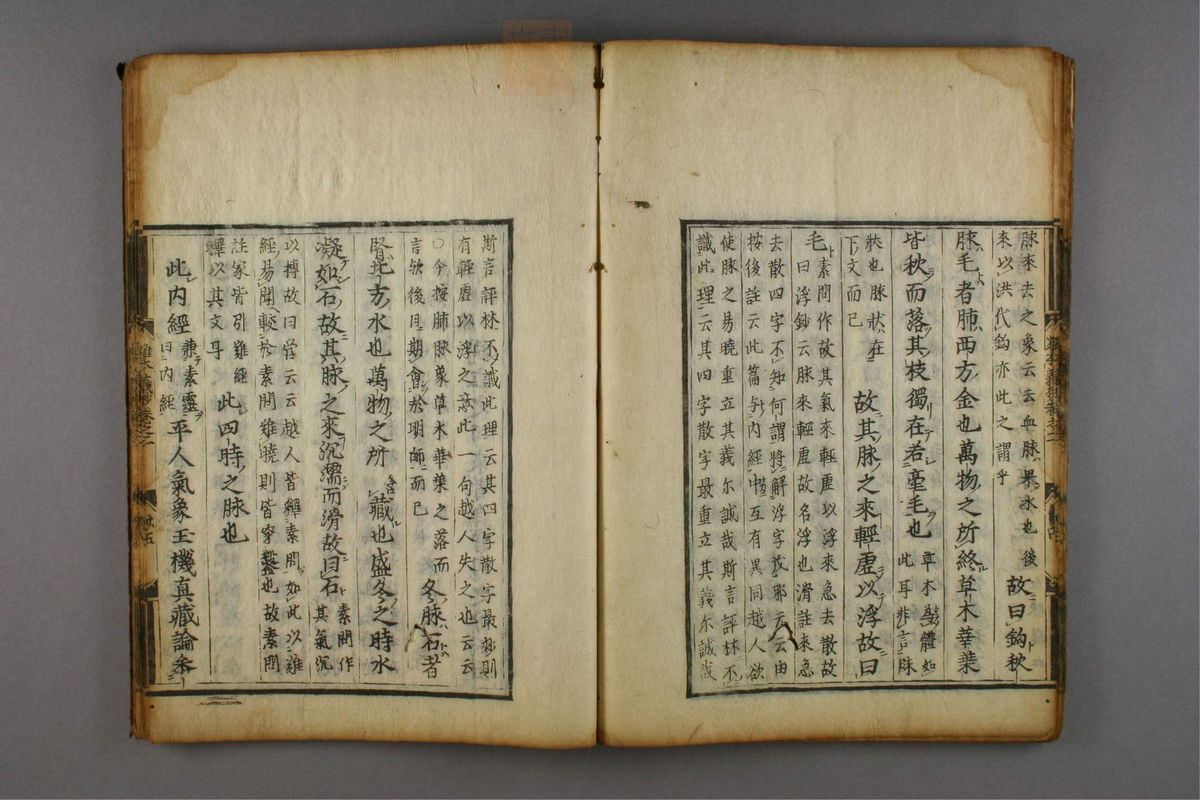 脉來去之象云云血脉果水也後
來以洪代鈎亦此之謂乎
故曰鈎秋
脉毛者肺西方金也萬物之所終草木華葉
皆秋而落其枝獨在若毫毛也
草木發體如
此耳非言脉
狀也脉狀在
下文而已
故其脉之來輕虛以浮故曰
毛
素問作故其氣來輕虛以浮來急去散故
曰浮鈔云脉來輕虛故名浮也滑註來急
去散四字不知何謂將解浮字耶云云由
按後註云此篇与内經中互有異同越人欲
使脉之易曉重立其義尔誠哉斯言評林不
識此理云其四字散字最重立其義尔誠哉
斯言評林不識此理云其四字散字最
有輕虛以浮之意此一句越人失之也云云
○今按肺脉象草木華葉之落而
言欤後日期會於明師而已
冬脉石者
腎北方水也萬物之所
藏也盛冬之時水
凝如石故其脉之來沉濡而滑故曰石
素問作
其氣沉
以搏故曰營云云越人皆釋素問如此以難
經易開較於素問難曉則皆穿鑿也故素問
註家皆引難經
釋以其文耳
此四時之脉也
此内經
兼素靈
曰内經
平人氣象玉機真藏論参